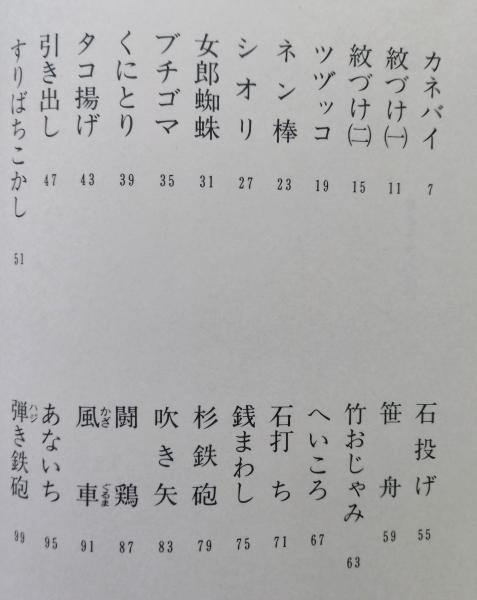 カネバイ 7
紋づけ(一) 11
紋づけ(二) 15
ツヅッコ 19
ネン棒 23
シオリ 27
女郎蜘蛛 31
ブチゴマ 35
くにとり 39
タコ揚げ 43
引き出し 47
すりばちこかし 51
石投げ 55
笹舟 59
竹おじゃみ 63
へいころ 67
石打ち 71
銭まわし 75
杉鉄砲 79
吹き矢 83
闘鶏 87
風車 かざぐるま 91
あないち 95
弾き鉄砲 ハジ 99